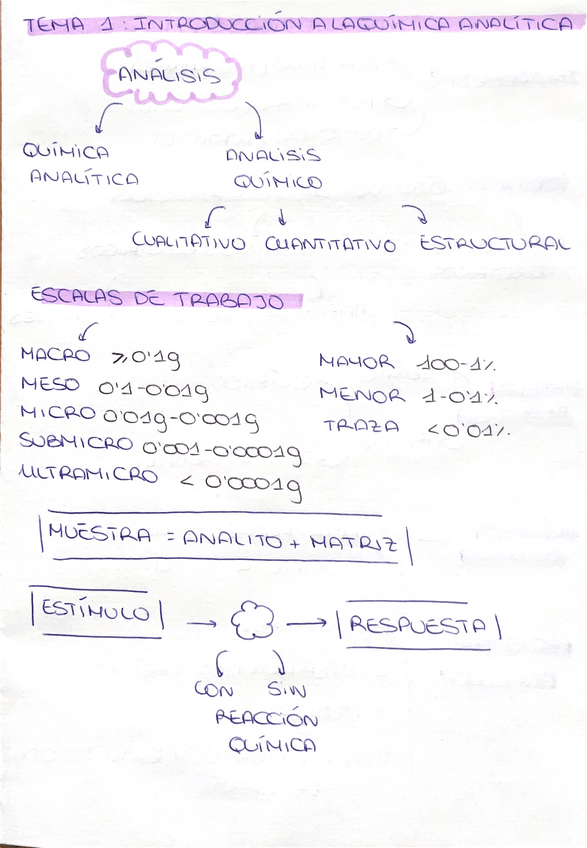 TEMA 1: INTRODUCCIÓN A LA QUÍMICA ANALÍTICA
ANÁLISIS
QUÍMICA
ANALÍTICA
ANALISIS
QUÍMICO
CUALITATIVO CUANTITATIVO ESTRUCTURAL
ESCALAS DE TRABAJO
MACRO ≥0'1g
MESO 0'1-0'01g
MICRO 0'01g-0'001g
SUBMICRO 0'001-0'0001g
ULTRAMICRO < 0'0001g
MAYOR 100-1%
MENOR 1-0'1%
TRAZA <0'01%
MUESTRA = ANALITO + MATRIZ
ESTÍMULO → → RESPUESTA
CON SIN
REACCIÓN
QUÍMICA